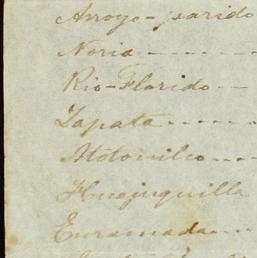 Arroyo-parido
Noria -----
Rio-Florido --
Zapata ......
Atotonilco ....
Huajuquilla
Enramada....